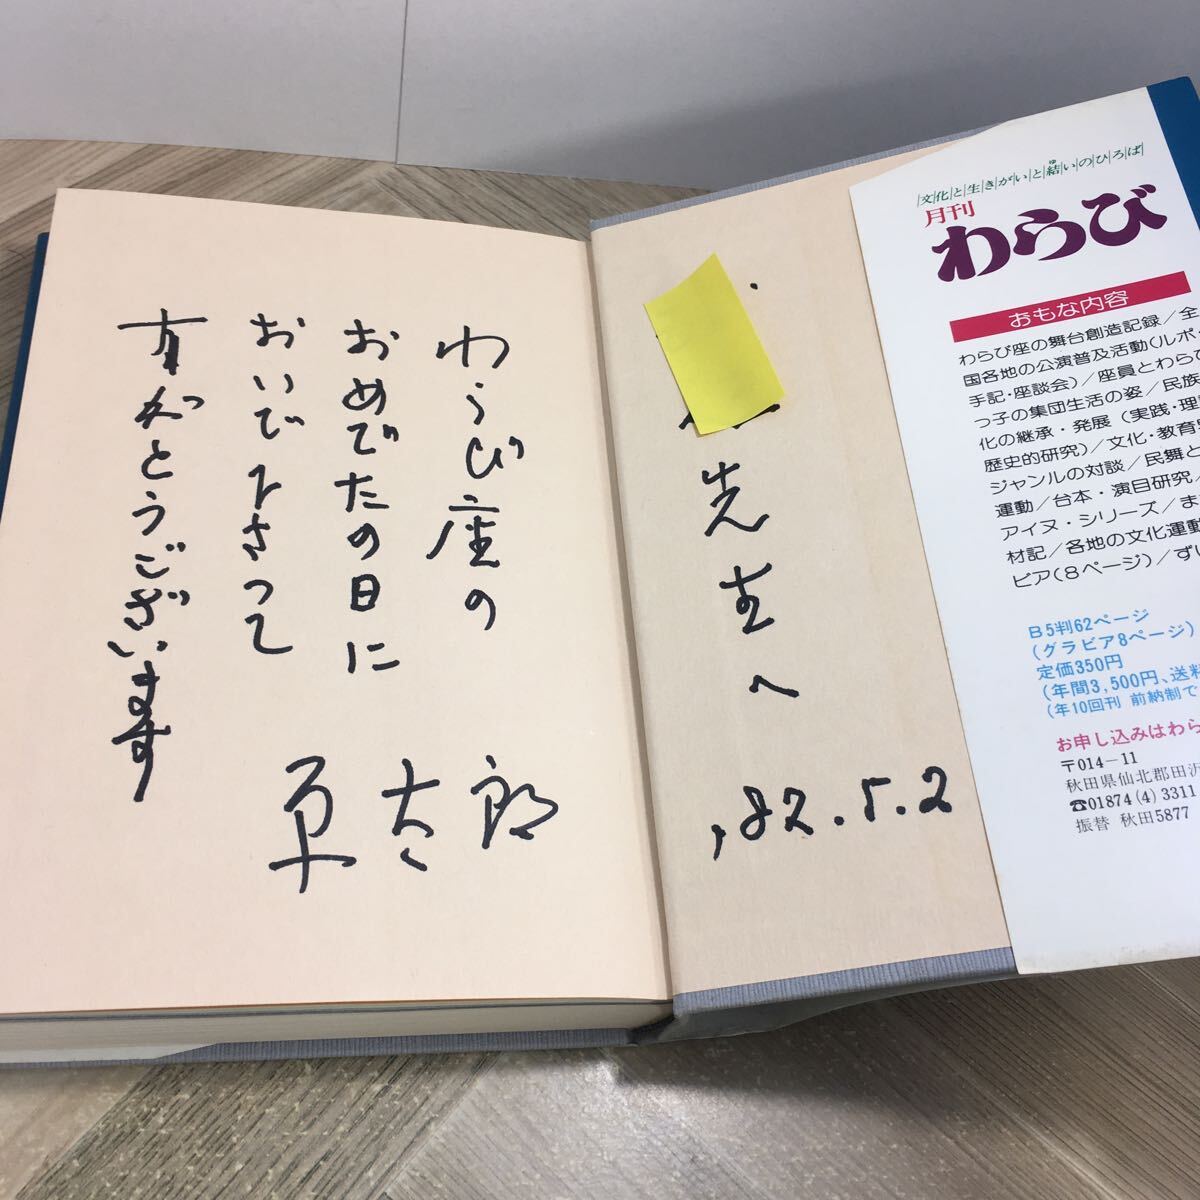 先生へ
'82.5.2
わらび座の
おめでたの日に
おいで下さって
有がとうございます
原太郎
文化と生きがいと結いのひろば
ゆ
月刊
わらび
おもな内容
わらび座の舞台創造記録/全
国各地の公演普及活動(ルポ・
手記・座談会)/座員とわらび
っ子の集団生活の姿/民族
化の継承・発展(実践・理
歴史的研究)/文化・教育
ジャンルの対談/民舞と
運動/台本・演目研究/
アイヌ・シリーズ/ま
材記/各地の文化運動
ビア(8ページ)/ずい
B5判62ページ
(グラビア8ページ)
定価350円
(年間3,500円、送料
(年10回刊 前納制で
お申し込みはわら
〒014-11
秋田県仙北郡田沢
☎01874(4)3311
振替 秋田5877